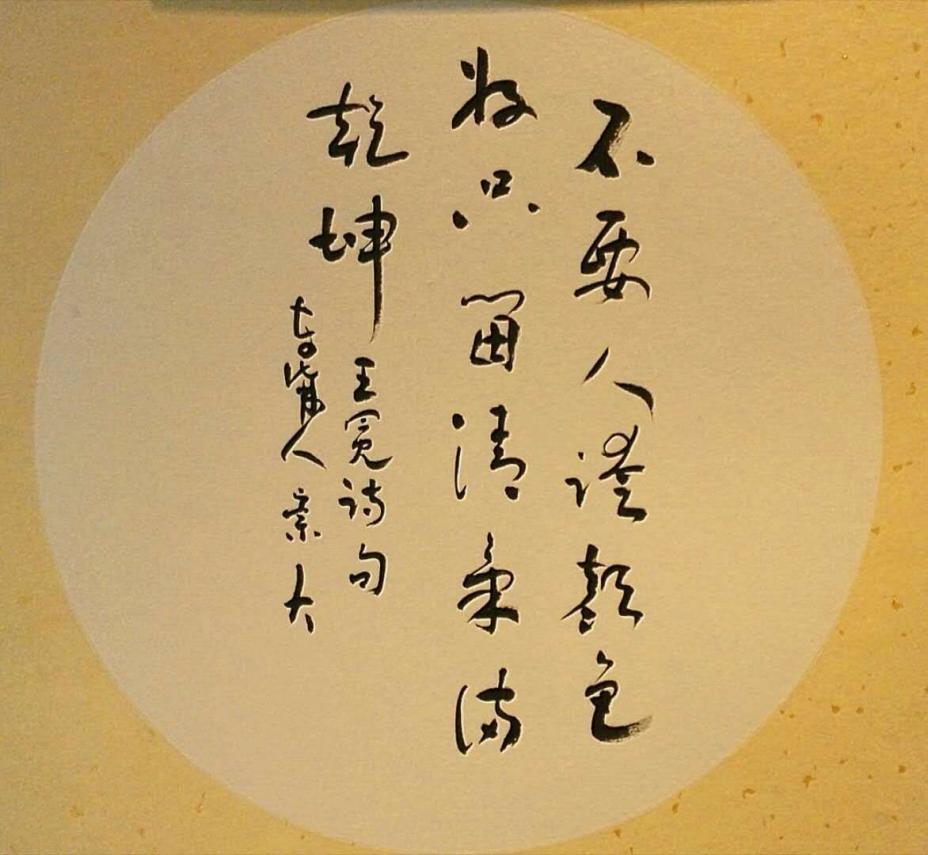 不要人誇顏色
好只留清氣滿
乾坤
王冕詩句
人 大